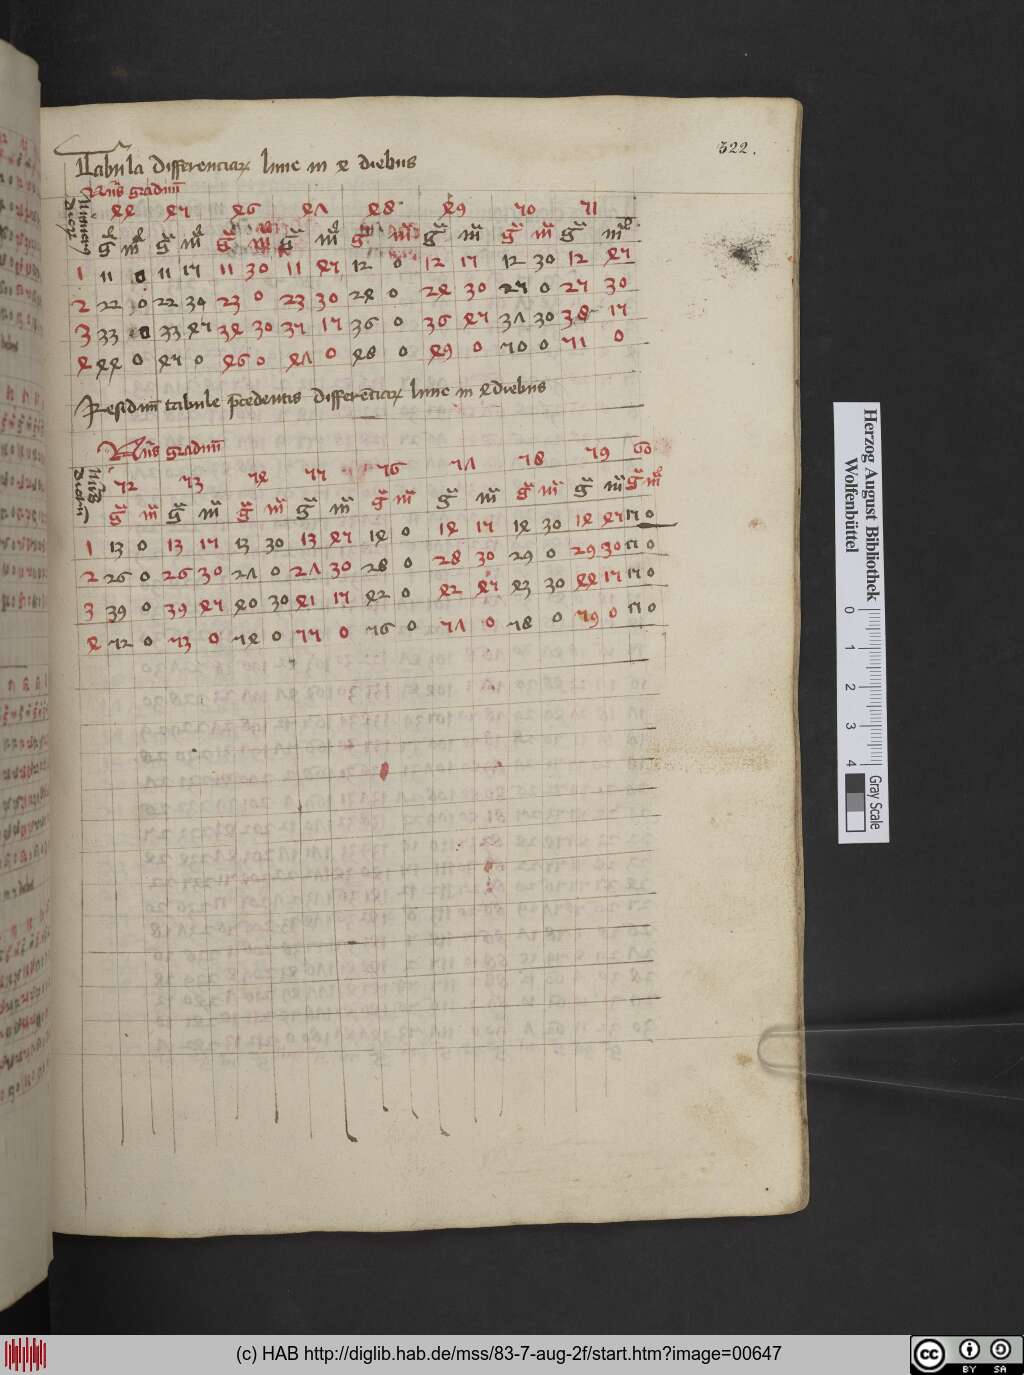 322.
Tabula differenciarum lune in 4 diebus
Numerus graduum
44 45 46 47 48 49 50 51
g m g m g m g m g m g m g m g m
1 11 0 11 15 11 30 11 45 12 0 12 15 12 30 12 45
2 22 0 22 30 23 0 23 30 24 0 24 30 25 0 25 30
3 33 0 33 45 34 30 35 15 36 0 36 45 37 30 38 15
4 44 0 45 0 46 0 47 0 48 0 49 0 50 0 51 0
Residuum tabule precedentis differenciarum lune in 4 diebus
Numerus graduum
52 53 54 55 56 57 58 59 60
g m g m g m g m g m g m g m g m g m
1 13 0 13 15 13 30 13 45 14 0 14 15 14 30 14 45 15 0
2 26 0 26 30 27 0 27 30 28 0 28 30 29 0 29 30 15 0
3 39 0 39 45 40 30 41 15 42 0 42 45 43 30 44 15 15 0
4 52 0 53 0 54 0 55 0 56 0 57 0 58 0 59 0 15 0
Herzog August Bibliothek
Wolfenbüttel
0 1 2 3 4
Gray Scale
(c) HAB http://diglib.hab.de/mss/83-7-aug-2f/start.htm?image=00647
cc BY SA